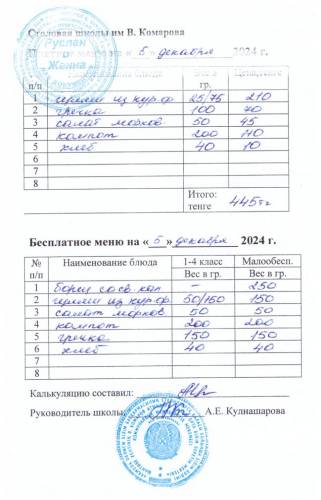 Столовая школы им В. Комарова
меню на « 5 » декабря 2024 г.
Руслан
"Женна"
№ п/п Наименование блюда Вес в гр. Цена, тенге
1 из кур.ф 25/75 210
2 гречка 100 70
3 салат морков 50 45
4 компот 200 110
5 хлеб 40 10
6
7
8
Итого: тенге 445тг
Бесплатное меню на « 5 » декабря 2024 г.
№ п/п Наименование блюда 1-4 класс Малообесп.
Вес в гр. Вес в гр.
1 борщ со св. кап – 250
2 из кур.ф 50/150 150
3 салат морков 50 50
4 компот 200 200
5 гречка 150 150
6 хлеб 40 40
7
8
Калькуляцию составил:
Руководитель школы: А.Е. Кулнашарова